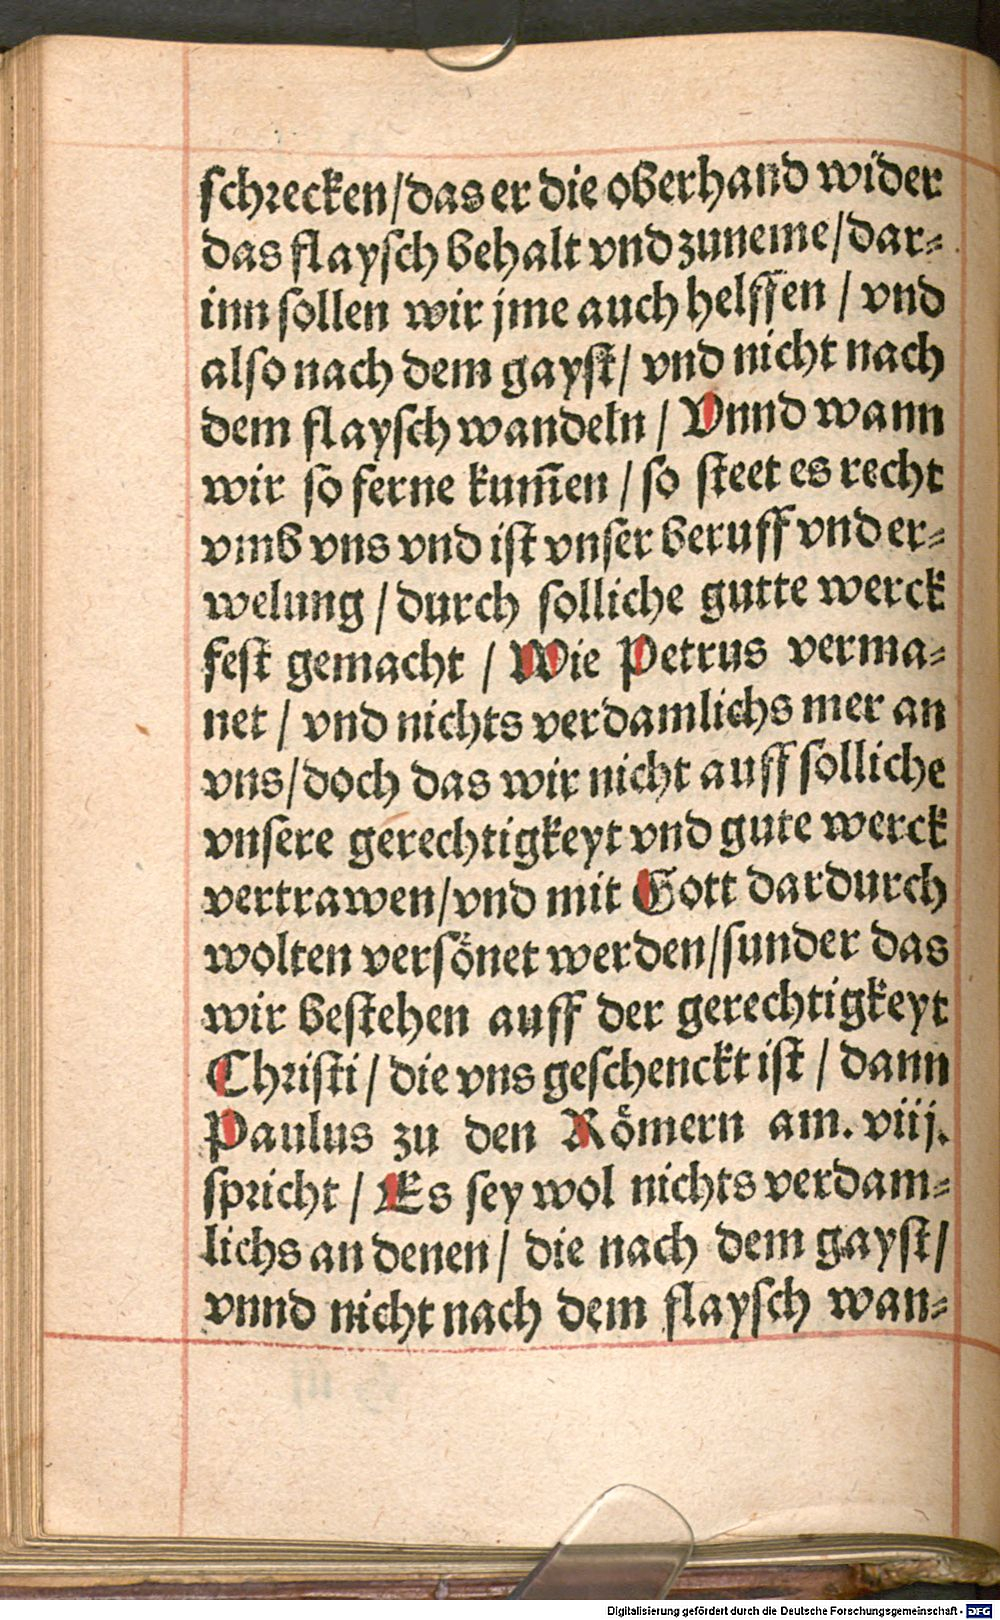 schrecken/das er die oberhand wider
das flaysch behalt vnd zuneme/dar⸗
inn sollen wir jme auch helffen / vnd
also nach dem gayst/ vnd nicht nach
dem flaysch wandeln / Vnnd wann
wir so ferne kum̄en / so steet es recht
vmb vns vnd ist vnser beruff vnd er⸗
welung / durch solliche gutte werck
fest gemacht / Wie Petrus verma⸗
net / vnd nichts verdamlichs mer an
vns/doch das wir nicht auff solliche
vnsere gerechtigkeyt vnd gute werck
vertrawen/vnd mit Gott dardurch
wolten versönet werden/sunder das
wir bestehen auff der gerechtigkeyt
Christi / die vns geschenckt ist / dann
Paulus zu den Römern am. viij.
spricht / Es sey wol nichts verdam⸗
lichs an denen/ die nach dem gayst/
vnnd nicht nach dem flaysch wan⸗
Digitalisierung gefördert durch die Deutsche Forschungsgemeinschaft - DFG